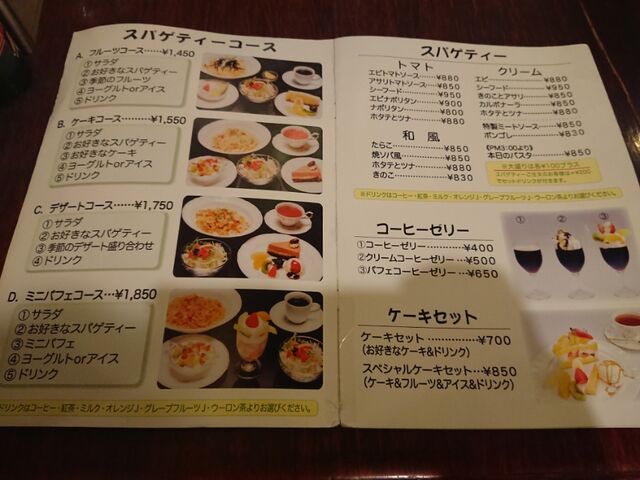 スパゲティーコース
A. フルーツコース……¥1,450
①サラダ
②お好きなスパゲティー
③季節のフルーツ
④ヨーグルトorアイス
⑤ドリンク
B. ケーキコース…¥1,550
①サラダ
②お好きなスパゲティー
③お好きなケーキ
④ヨーグルトorアイス
⑤ドリンク
C. デザートコース…¥1,750
①サラダ
②お好きなスパゲティー
③季節のデザート盛り合わせ
④ドリンク
D. ミニパフェコース…¥1,850
①サラダ
②お好きなスパゲティー
③ミニパフェ
④ヨーグルトorアイス
⑤ドリンク
ドリンクはコーヒー・紅茶・ミルク・オレンジJ・グレープフルーツJ・ウーロン茶よりお選びください。
スパゲティー
トマト
エビトマトソース……¥880
アサリトマトソース…¥850
シーフード……¥950
エビナポリタン……¥900
ナポリタン……¥800
ホタテとツナ……¥880
和風
たらこ……¥850
焼ソバ風……¥850
ホタテとツナ……¥880
きのこ……¥830
クリーム
エビ……¥880
シーフード……¥950
きのことアサリ……¥850
カルボナーラ……¥850
ホタテとツナ……¥880
特製ミートソース…¥850
ボンゴレ……¥830
《PM3:00より》
本日のパスタ……¥850
※大盛りは各¥100プラス
スパゲティーご注文のお客様は+¥200
でセットドリンクが付きます。
※ドリンクはコーヒー・紅茶・ミルク・オレンジJ・グレープフルーツJ・ウーロン茶よりお選びください。
コーヒーゼリー
①コーヒーゼリー……¥400
②クリームコーヒーゼリー…¥500
③パフェコーヒーゼリー…¥650
① ② ③
ケーキセット
ケーキセット……¥700
(お好きなケーキ&ドリンク)
スペシャルケーキセット…¥850
(ケーキ&フルーツ&アイス&ドリンク)